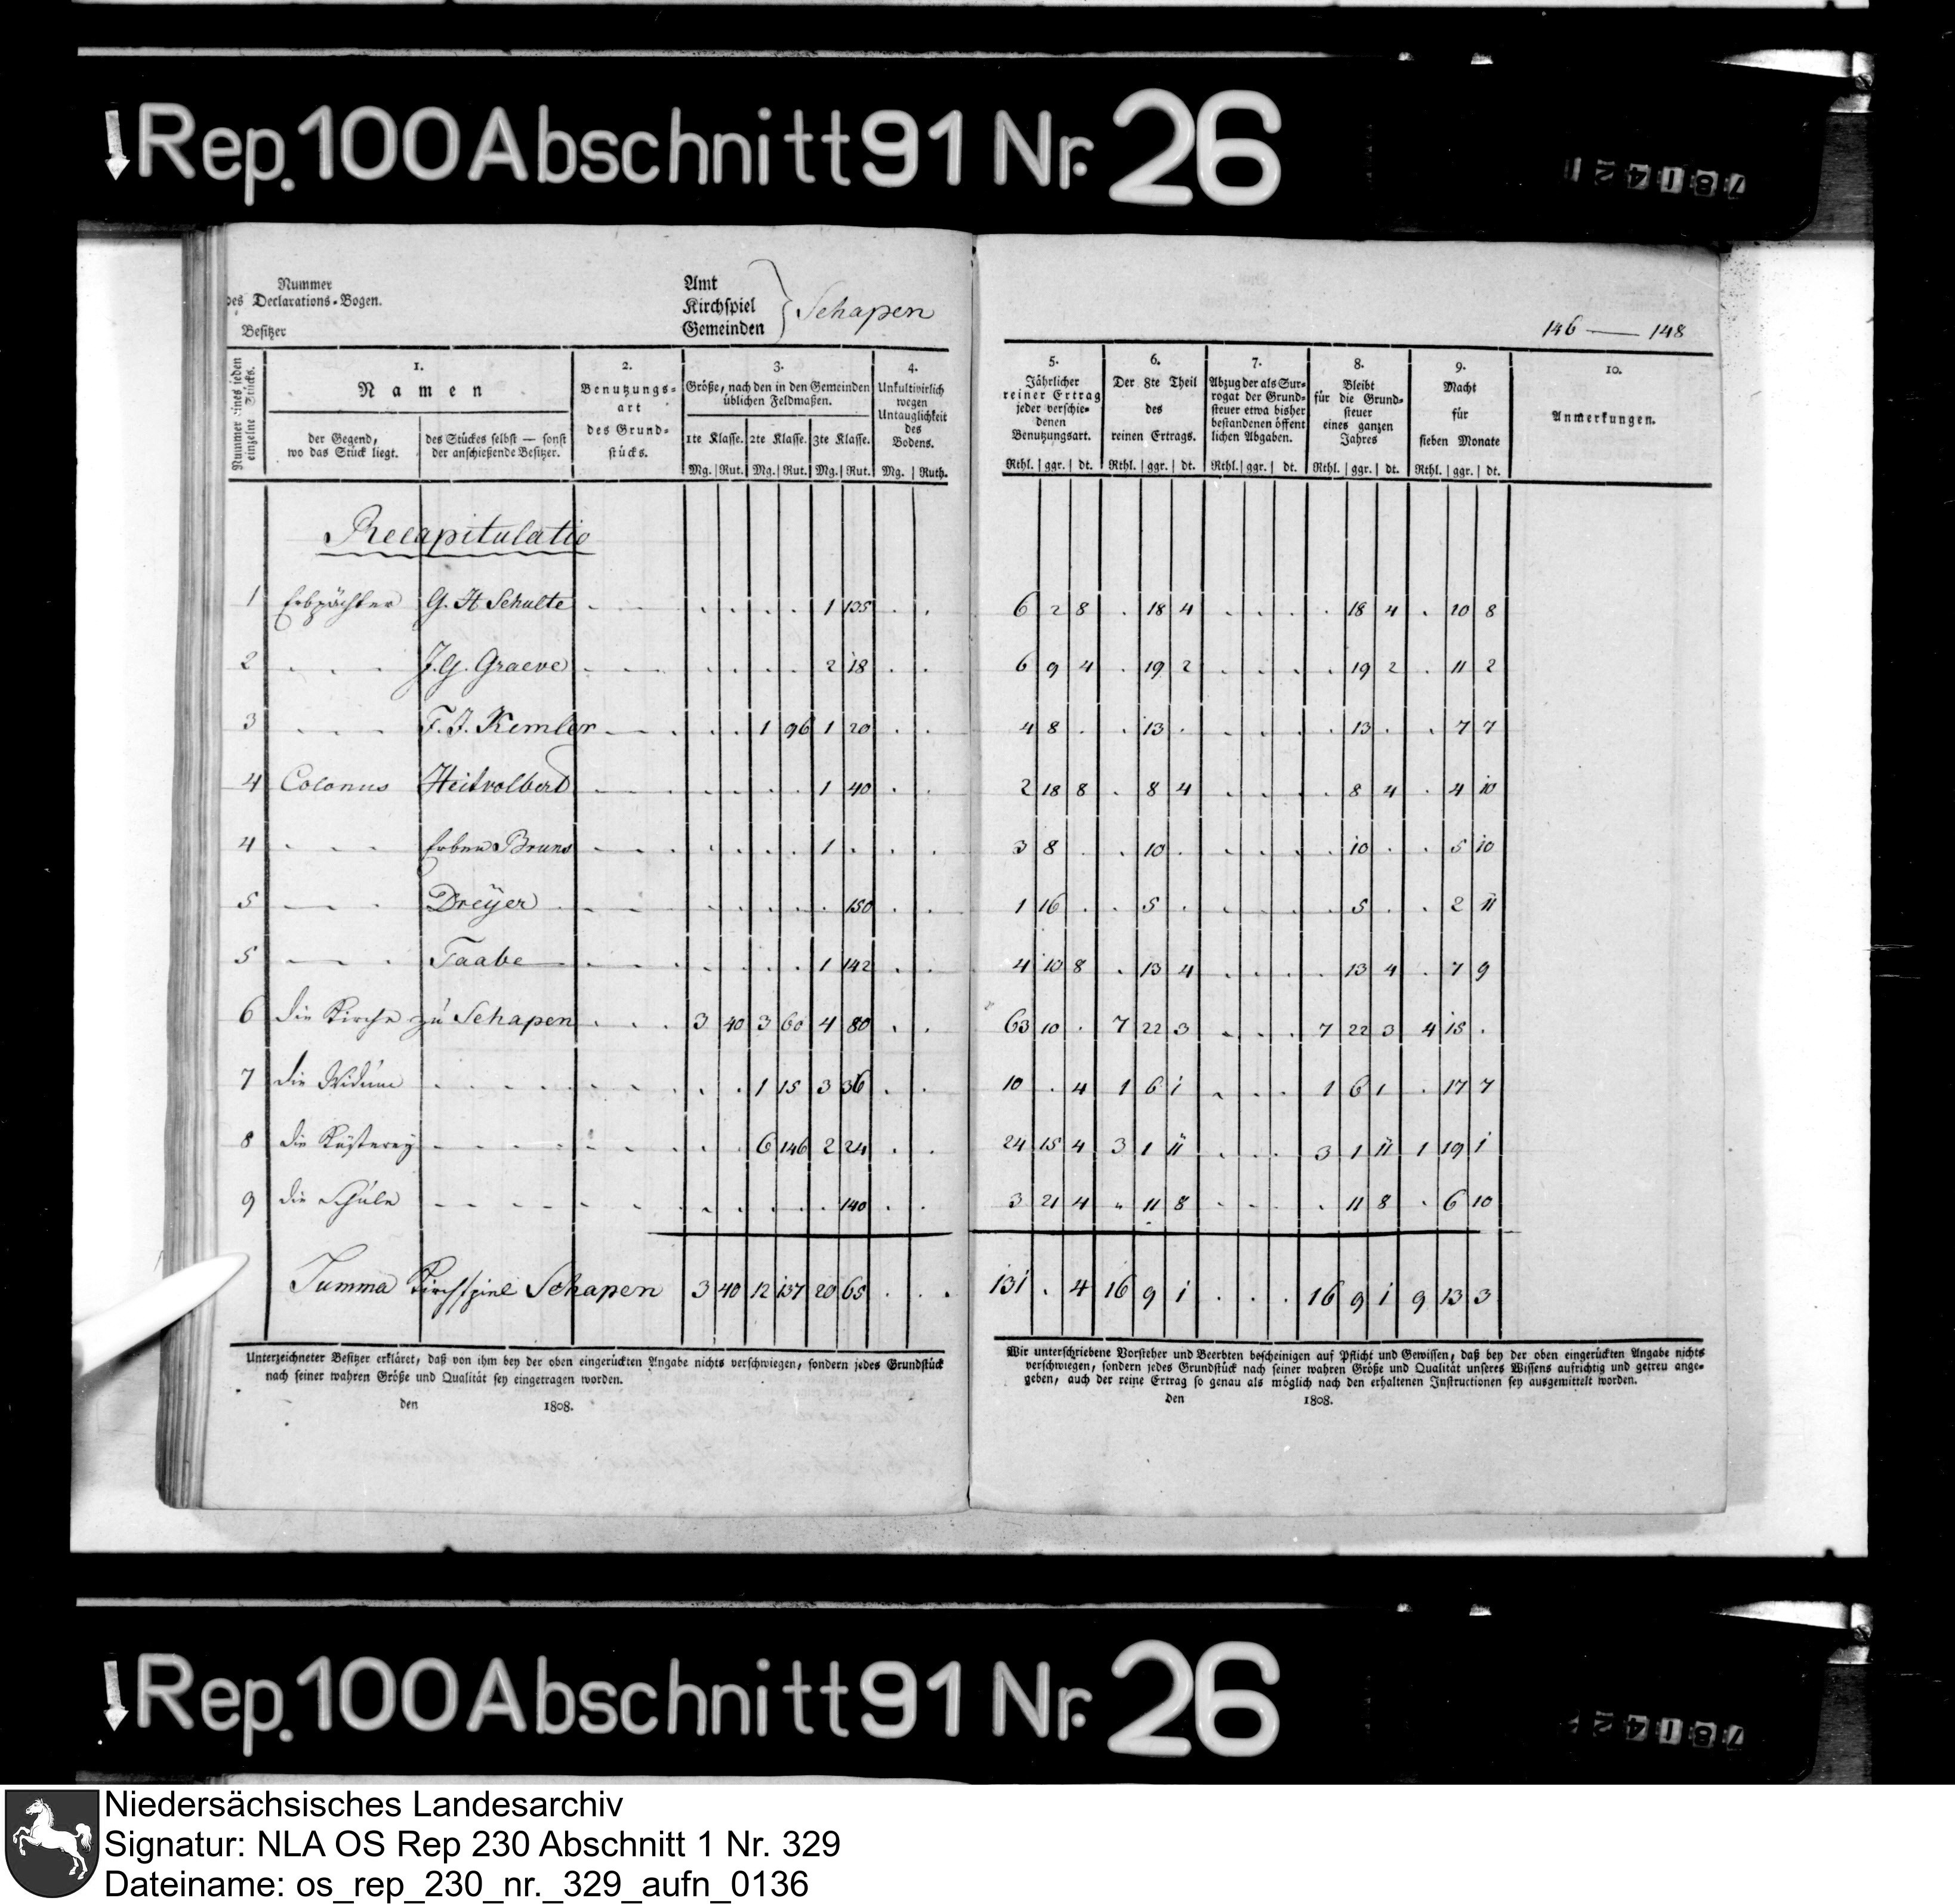 Rep. 100 Abschnitt 91 Nr. 26
Nummer
des Declarations-Bogen.
Besitzer
Amt
Kirchspiel
Gemeinden
Schapen
146 — 148
Nummer eines jeden einzelne Stücks.
1.
Namen
der Gegend, wo das Stück liegt.
des Stückes selbst — sonst der anschießende Besitzer.
2.
Benutzungs-art des Grund-stücks.
3.
Größe, nach den in den Gemeinden üblichen Feldmaßen.
1te Klasse. 2te Klasse. 3te Klasse.
Mg. Rut. Mg. Rut. Mg. Rut.
4.
Unkultivirlich wegen Untauglichkeit des Bodens.
Mg. Ruth.
5.
Jährlicher reiner Ertrag jeder verschie-denen Benutzungsart.
Rthl. ggr. dt.
6.
Der 8te Theil des reinen Ertrags.
Rthl. ggr. dt.
7.
Abzug der als Sur-rogat der Grund-steuer etwa bisher bestandenen öffent lichen Abgaben.
Rthl. ggr. dt.
8.
Bleibt für die Grund-steuer eines ganzen Jahres
Rthl. ggr. dt.
9.
Macht für sieben Monate
Rthl. ggr. dt.
10.
Anmerkungen.
Recapitulatio
1 Erbpächter G. H Schulte 1 135 6 2 8 18 4 18 4 10 8
2 J. G. Graeve 2 18 6 9 4 19 2 19 2 11 2
3 F. J. Kemler 1 96 1 20 4 8 13 13 7 7
4 Colonus Heitvolbert 1 40 2 18 8 8 4 8 4 4 10
4 Erben Bruns 1 3 8 10 10 5 10
5 Dreÿer 150 1 16 5 5 2 11
5 Taabe 1 142 4 10 8 13 4 13 4 7 9
6 die Kirche zu Schapen 3 40 3 60 4 80 63 10 7 22 3 7 22 3 4 15
7 die Widum 1 15 3 36 10 4 1 6 1 1 6 1 17 7
8 die Küsterey 6 146 2 24 24 15 4 3 1 11 3 1 11 1 19 1
9 die Schule 140 3 21 4 11 8 11 8 6 10
Summa Kirchspiel Schapen 3 40 12 137 20 65 131 4 16 9 1 16 9 1 9 13 3
Unterzeichneter Besitzer erkläret, daß von ihm bey der oben eingerückten Angabe nichts verschwiegen, sondern jedes Grundstück
nach seiner wahren Größe und Qualität sey eingetragen worden.
den 1808.
Wir unterschriebene Vorsteher und Beerbten bescheinigen auf Pflicht und Gewissen, daß bey der oben eingerückten Angabe nichts
verschwiegen, sondern jedes Grundstück nach seiner wahren Größe und Qualität unseres Wissens aufrichtig und getreu ange-
geben, auch der reine Ertrag so genau als möglich nach den erhaltenen Instructionen sey ausgemittelt worden.
den 1808.
Rep. 100 Abschnitt 91 Nr. 26
Niedersächsisches Landesarchiv
Signatur: NLA OS Rep 230 Abschnitt 1 Nr. 329
Dateiname: os_rep_230_nr._329_aufn_0136